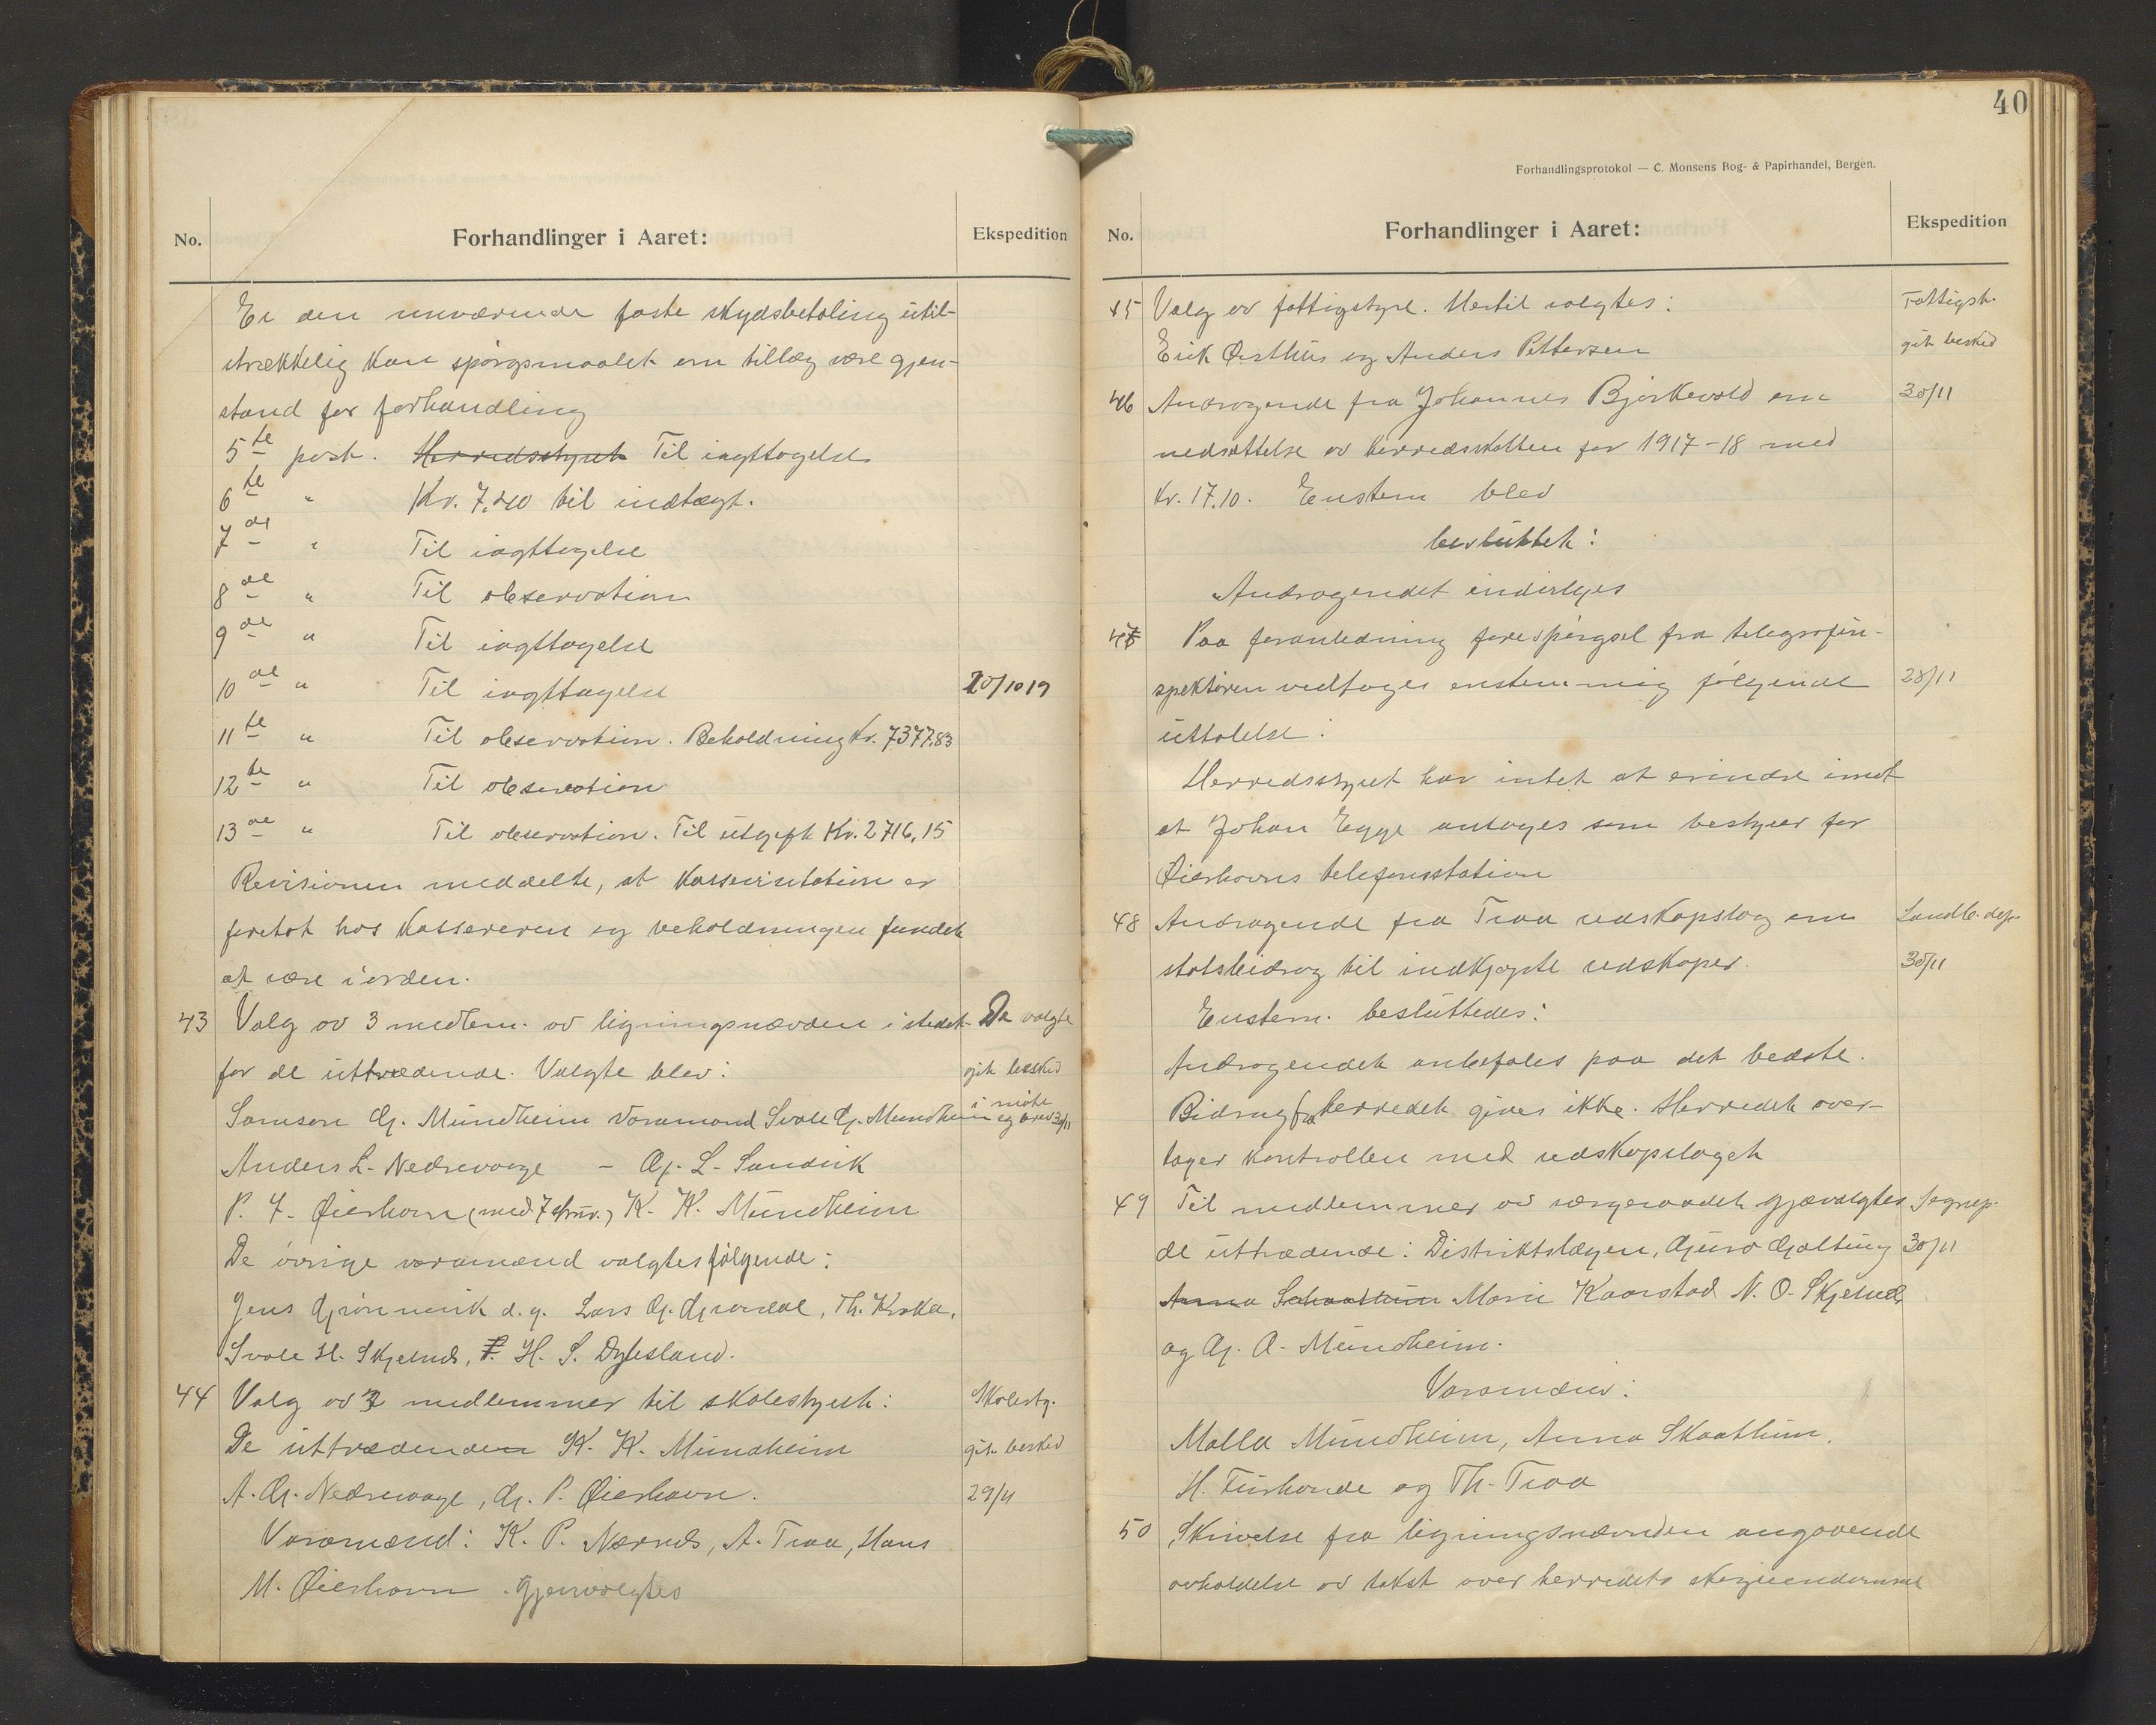 No.
Forhandlinger i Aaret:
Ekspedition
Er den nuværende faste skydsbetaling util-
strækkelig kan spørgsmaalet om tillæg være gjen-
stand for forhandling
5te post. Herredsstyret Til iagttagelse
6te " Kr. 7.40 til indtægt.
7de " Til iagttagelse
8de " Til observation
9de " Til iagttagelse
10de " Til iagttagelse 20/10 19
11te " Til observation. Beholdning kr. 7377,83
12te " Til observation
13de " Til observation. Til utgift Kr. 2716,15
Revisionen meddelte, at kassevisitation er
foretat hos kassereren og beholdningen fundet
at være i orden.
43 Valg av 3 medlem. av ligningsnævnden i stedet De valgte
for de uttrædende. Valgte blev: git besked
Samson G. Mundheim varamand Svale G. Mundheim i møte og brev 30/11
Anders L. Nedrevaage – G. L. Sandvik
P. J. Øierhavn (med 7 stm.) K. K. Mundheim
De øvrige varamænd valgtes følgende:
Jens Grønnevik d.y. Lars G. Grøndal, Th. Kroka,
Svale H. Skjelnes, H. S. Dylesland.
44 Valg av 3 medlemmer til skolestyret: Skolesty.
De uttrædenden K. K. Mundheim git besked
A. G. Nedrevaage, G. P. Øierhavn. 29/11
Varamænd: K. P. Nærnes, A. Traa, Hans
M. Øierhavn. Gjenvalgtes
40
Forhandlingsprotokol — C. Monsens Bog- & Papirhandel, Bergen.
No.
Forhandlinger i Aaret:
Ekspedition
45 Valg av fattigstyre. Hertil valgtes: Fattigst.
Erik Østhus og Anders Pettersen git besked
46 Andragende fra Johannes Bjørkevold om 30/11
nedsættelse av herredsskatten for 1917-18 med
kr. 17.10. Enstem blev
besluttet:
Andragendet indvilges
47 Paa foranledning forespørgsel fra telegrafin-
spektøren vedtoges enstemmig følgende 28/11
uttalelse:
Herredsstyret har intet at erindre imot
at Johan Egge antages som bestyrer for
Øierhavns telefonstation
48 Andragende fra Traa redskapslag om Landb. dep.
statsbidrag til indkjøpte redskaper. 30/11
Enstem. besluttedes:
Andragendet anbefales paa det bedste.
Bidrag fra herredet gives ikke. Herredet over-
tager kontrollen med redskapslaget
49 Til medlemmer av vergeraadet gjenvalgtes Sognep.
de uttrædende: Distriktslægen, Guro Gjøltung 30/11
Anna Schaathun Marie Kaarstad N. O. Skjelnes
og G. A. Mundheim.
Varamænd:
Malla Mundheim, Anna Skaathun,
H. Furhovde og Th. Traa
50 Skrivelse fra ligningsnævnden angaaende
avholdelse av takst over herredets skogeiendomme